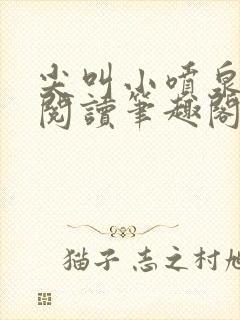 尖叫小噴泉
閱讀筆趣閣
猫子 志之村旭